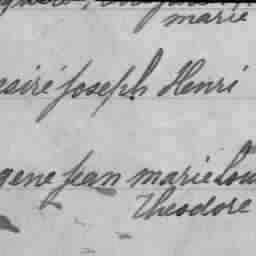 marie
esiré Joseph Henri
gene Jean marie Lou
Theodore